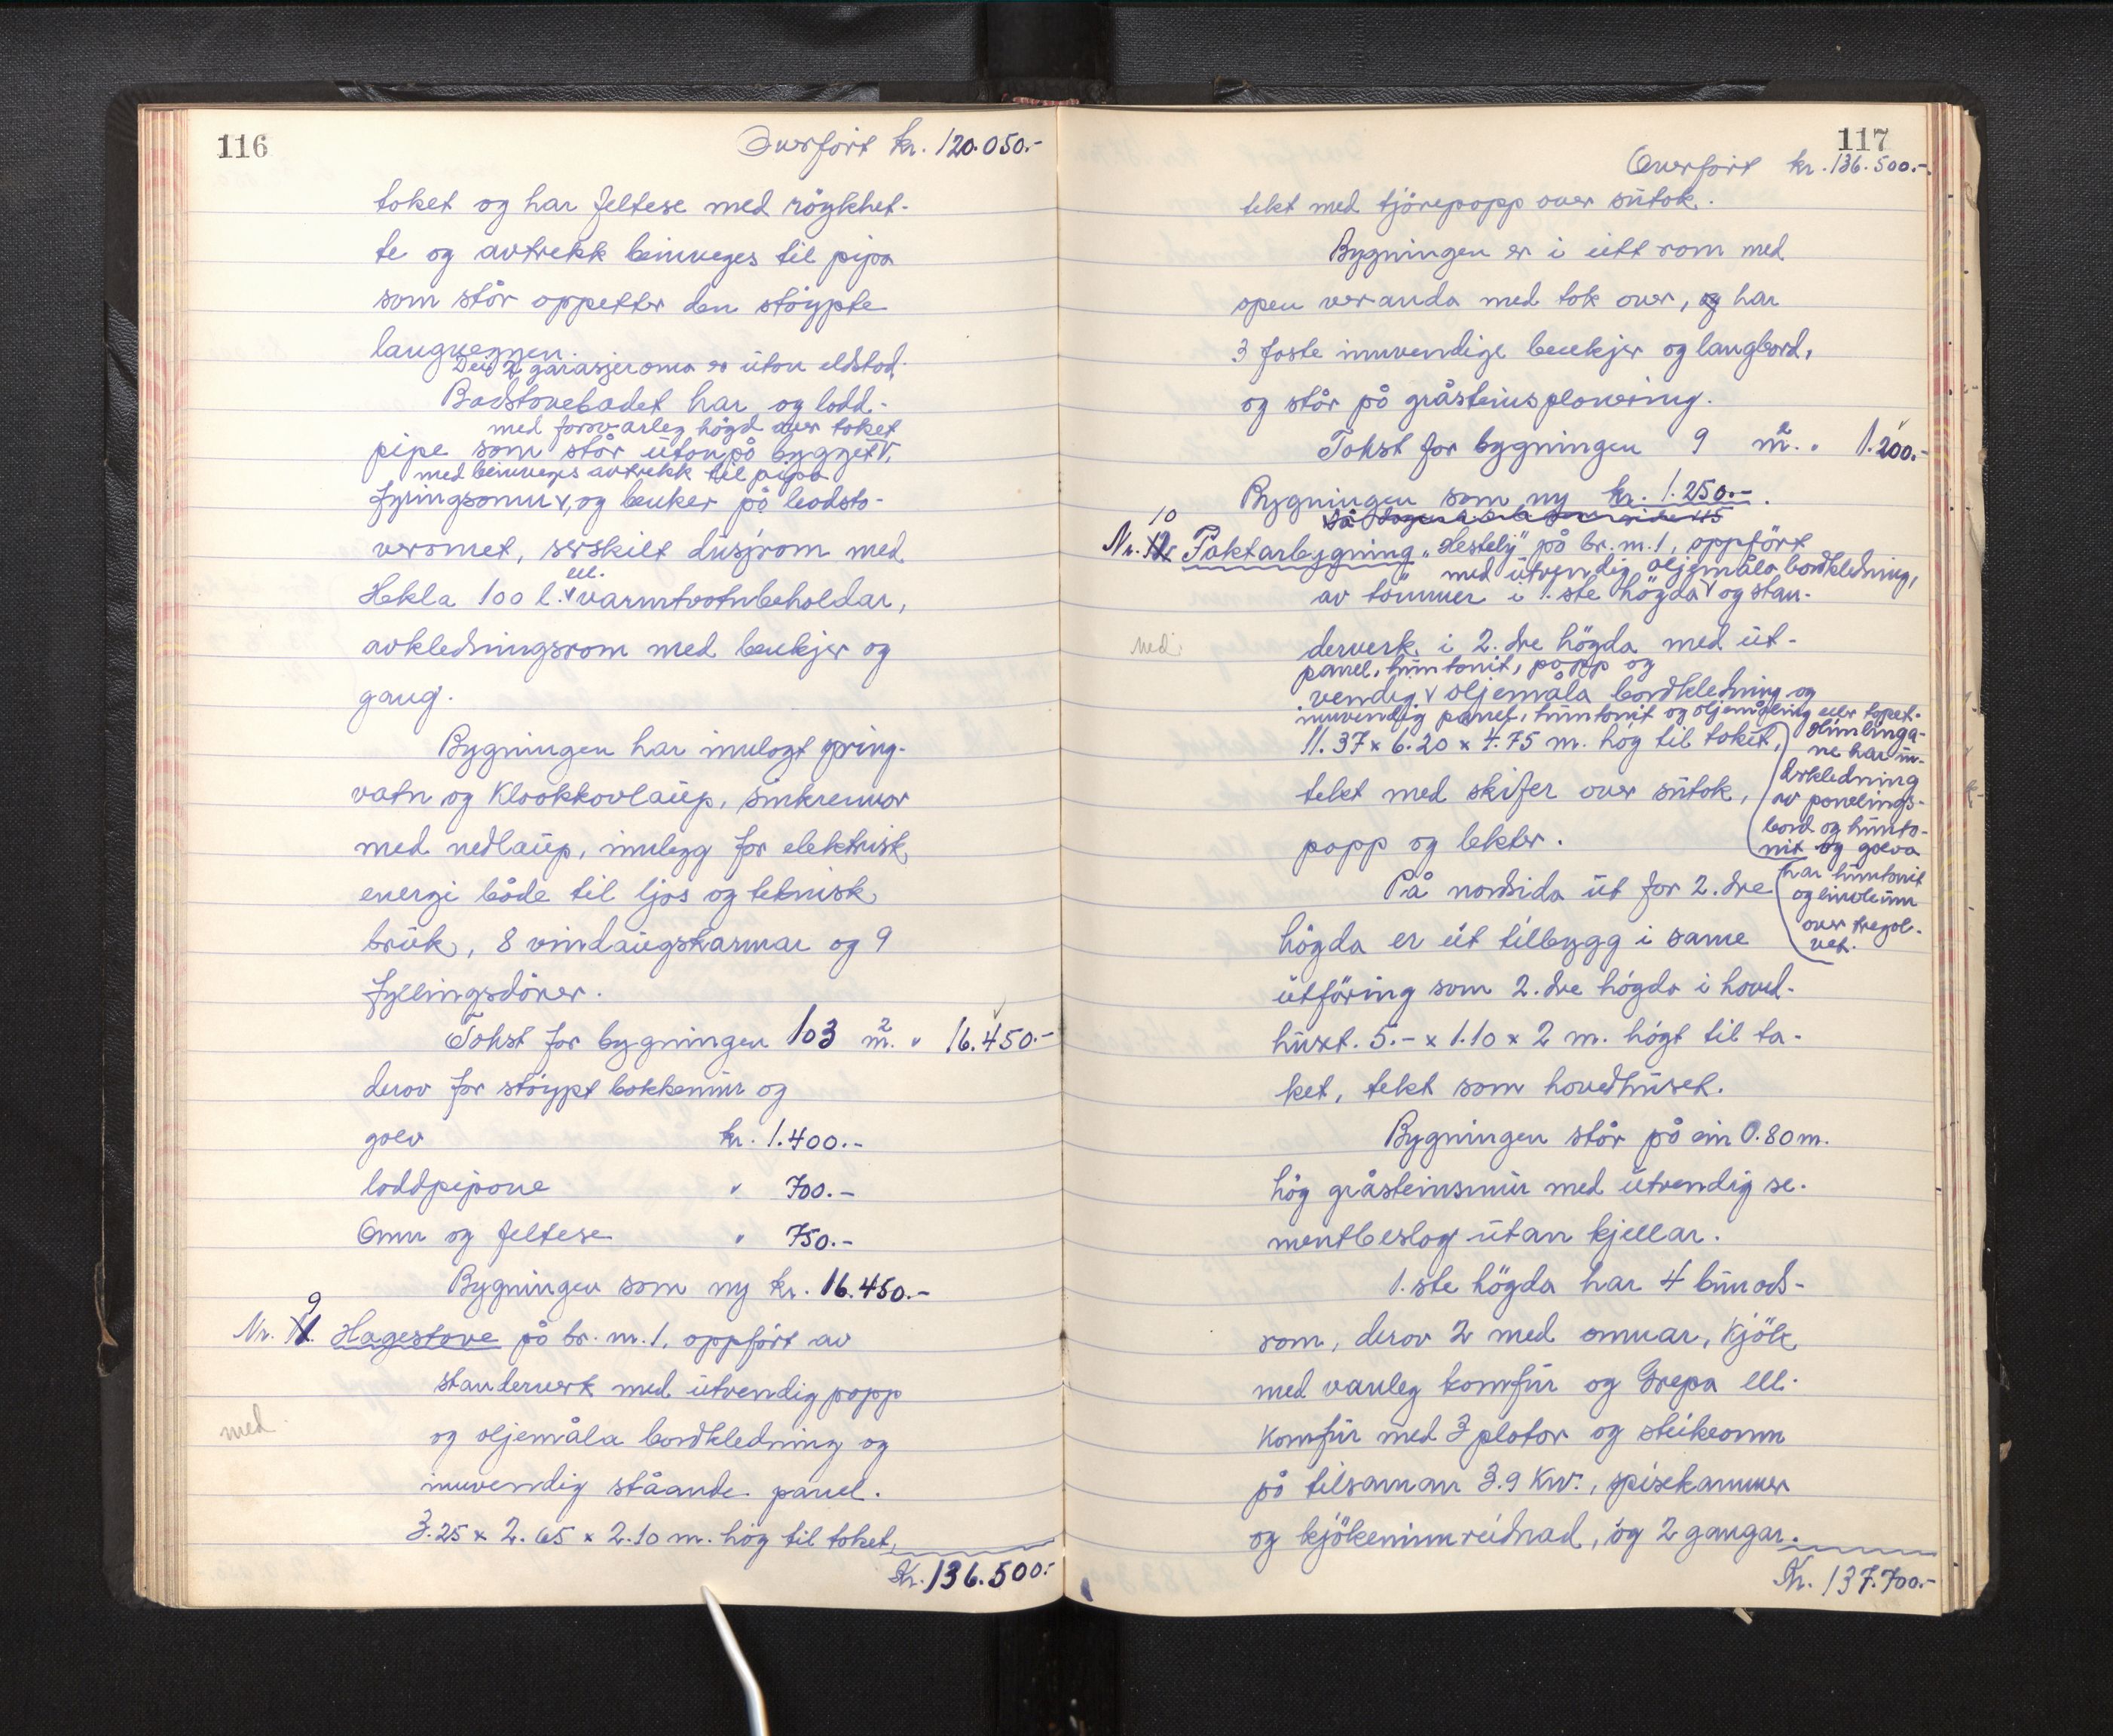 116
Överfört kr. 120.050.-
taket og har feltese med röykhet-
te og avtrekk beinveges til pipa
som står oppetter den stöypte
langveggen.
Dei 2 garasjeroma er utan eldstad.
Badstovebadet har og lodd-
med forsvarleg högd over taket
pipe som står utanpå bygget V,
med beinveges avtrekk til pipa
fyringsomn v, og benker på badsto-
veromet, serskilt dusjrom med
ell.
Hekla 100 l. v varmtvatnbeholdar,
avkledningsrom med benkjer og
gang.
Bygningen har innlagt spring-
vatn og Kloakkavlaup, sinkrennor
med nedlaup, innlegg for elektrisk
energi både til ljos og teknisk
bruk, 8 vindaugskarmar og 9
fyllingsdörer.
Takst for bygningen 103 m². " 16.450.-
derav for stöypt bakkemur og
golv kr. 1.400.-
loddpipone " 700.-
Omn og feltese " 750.-
Bygningen som ny kr. 16.450.-
9
Nr. 11. Hagestove på br. nr. 1, oppfört av
standerverk med utvendig papp
med
og oljemåla bordkledning og
innvendig ståande panel.
3.25 x 2.65 x 2.10 m. hög til taket,
Kr. 136.500.-
117
Överfört kr. 136.500.-
tekt med tjörepapp over sutak.
Bygningen er i eitt rom med
open veranda med tak over, og har
3 faste innvendige benkjer og langbord,
og står på gråsteinsplanering.
Takst for bygningen 9 m². " 1.200.-
Bygningen som ny kr. 1.250.-.
10
Nr. 12 Paktarbygning "Hestely" på br. nr. 1, oppfört
med utvendig oljemåla bordkledning,
av tömmer i 1.ste högda v og stan-
med
derverk i 2.dre högda med ut-
panel, huntonit, papp og
vendig v oljemåla bordkledning og
innvendig panel, huntonit og oljemåling eller tapet.
11.37 x 6.20 x 4.75 m. hög til taket,
tekt med skifer over sutak,
papp og lekter.
Himlinga-
ne har un-
derkledning
av panelings-
bord og hunto-
nit og golva
har huntonit
og linoleum
over tregol-
vet.
På nordsida ut for 2.dre
högda er eit tilbygg i same
utföring som 2.dre högda i hoved-
huset. 5.- x 1.10 x 2 m. högt til ta-
ket, tekt som hovedhuset.
Bygningen står på ein 0.80 m.
hög gråsteinsmur med utvendig se-
mentbeslag utan kjellar.
1.ste högda har 4 bunads-
rom, derav 2 med omnar, Kjök
med vanleg komfur og Grepa ell.
Komfur med 3 plator og steikeomn
på tilsaman 3.9 Kw., spisekammer
og kjökeninnreidnad, og 2 gangar.
Kr. 137.700.-